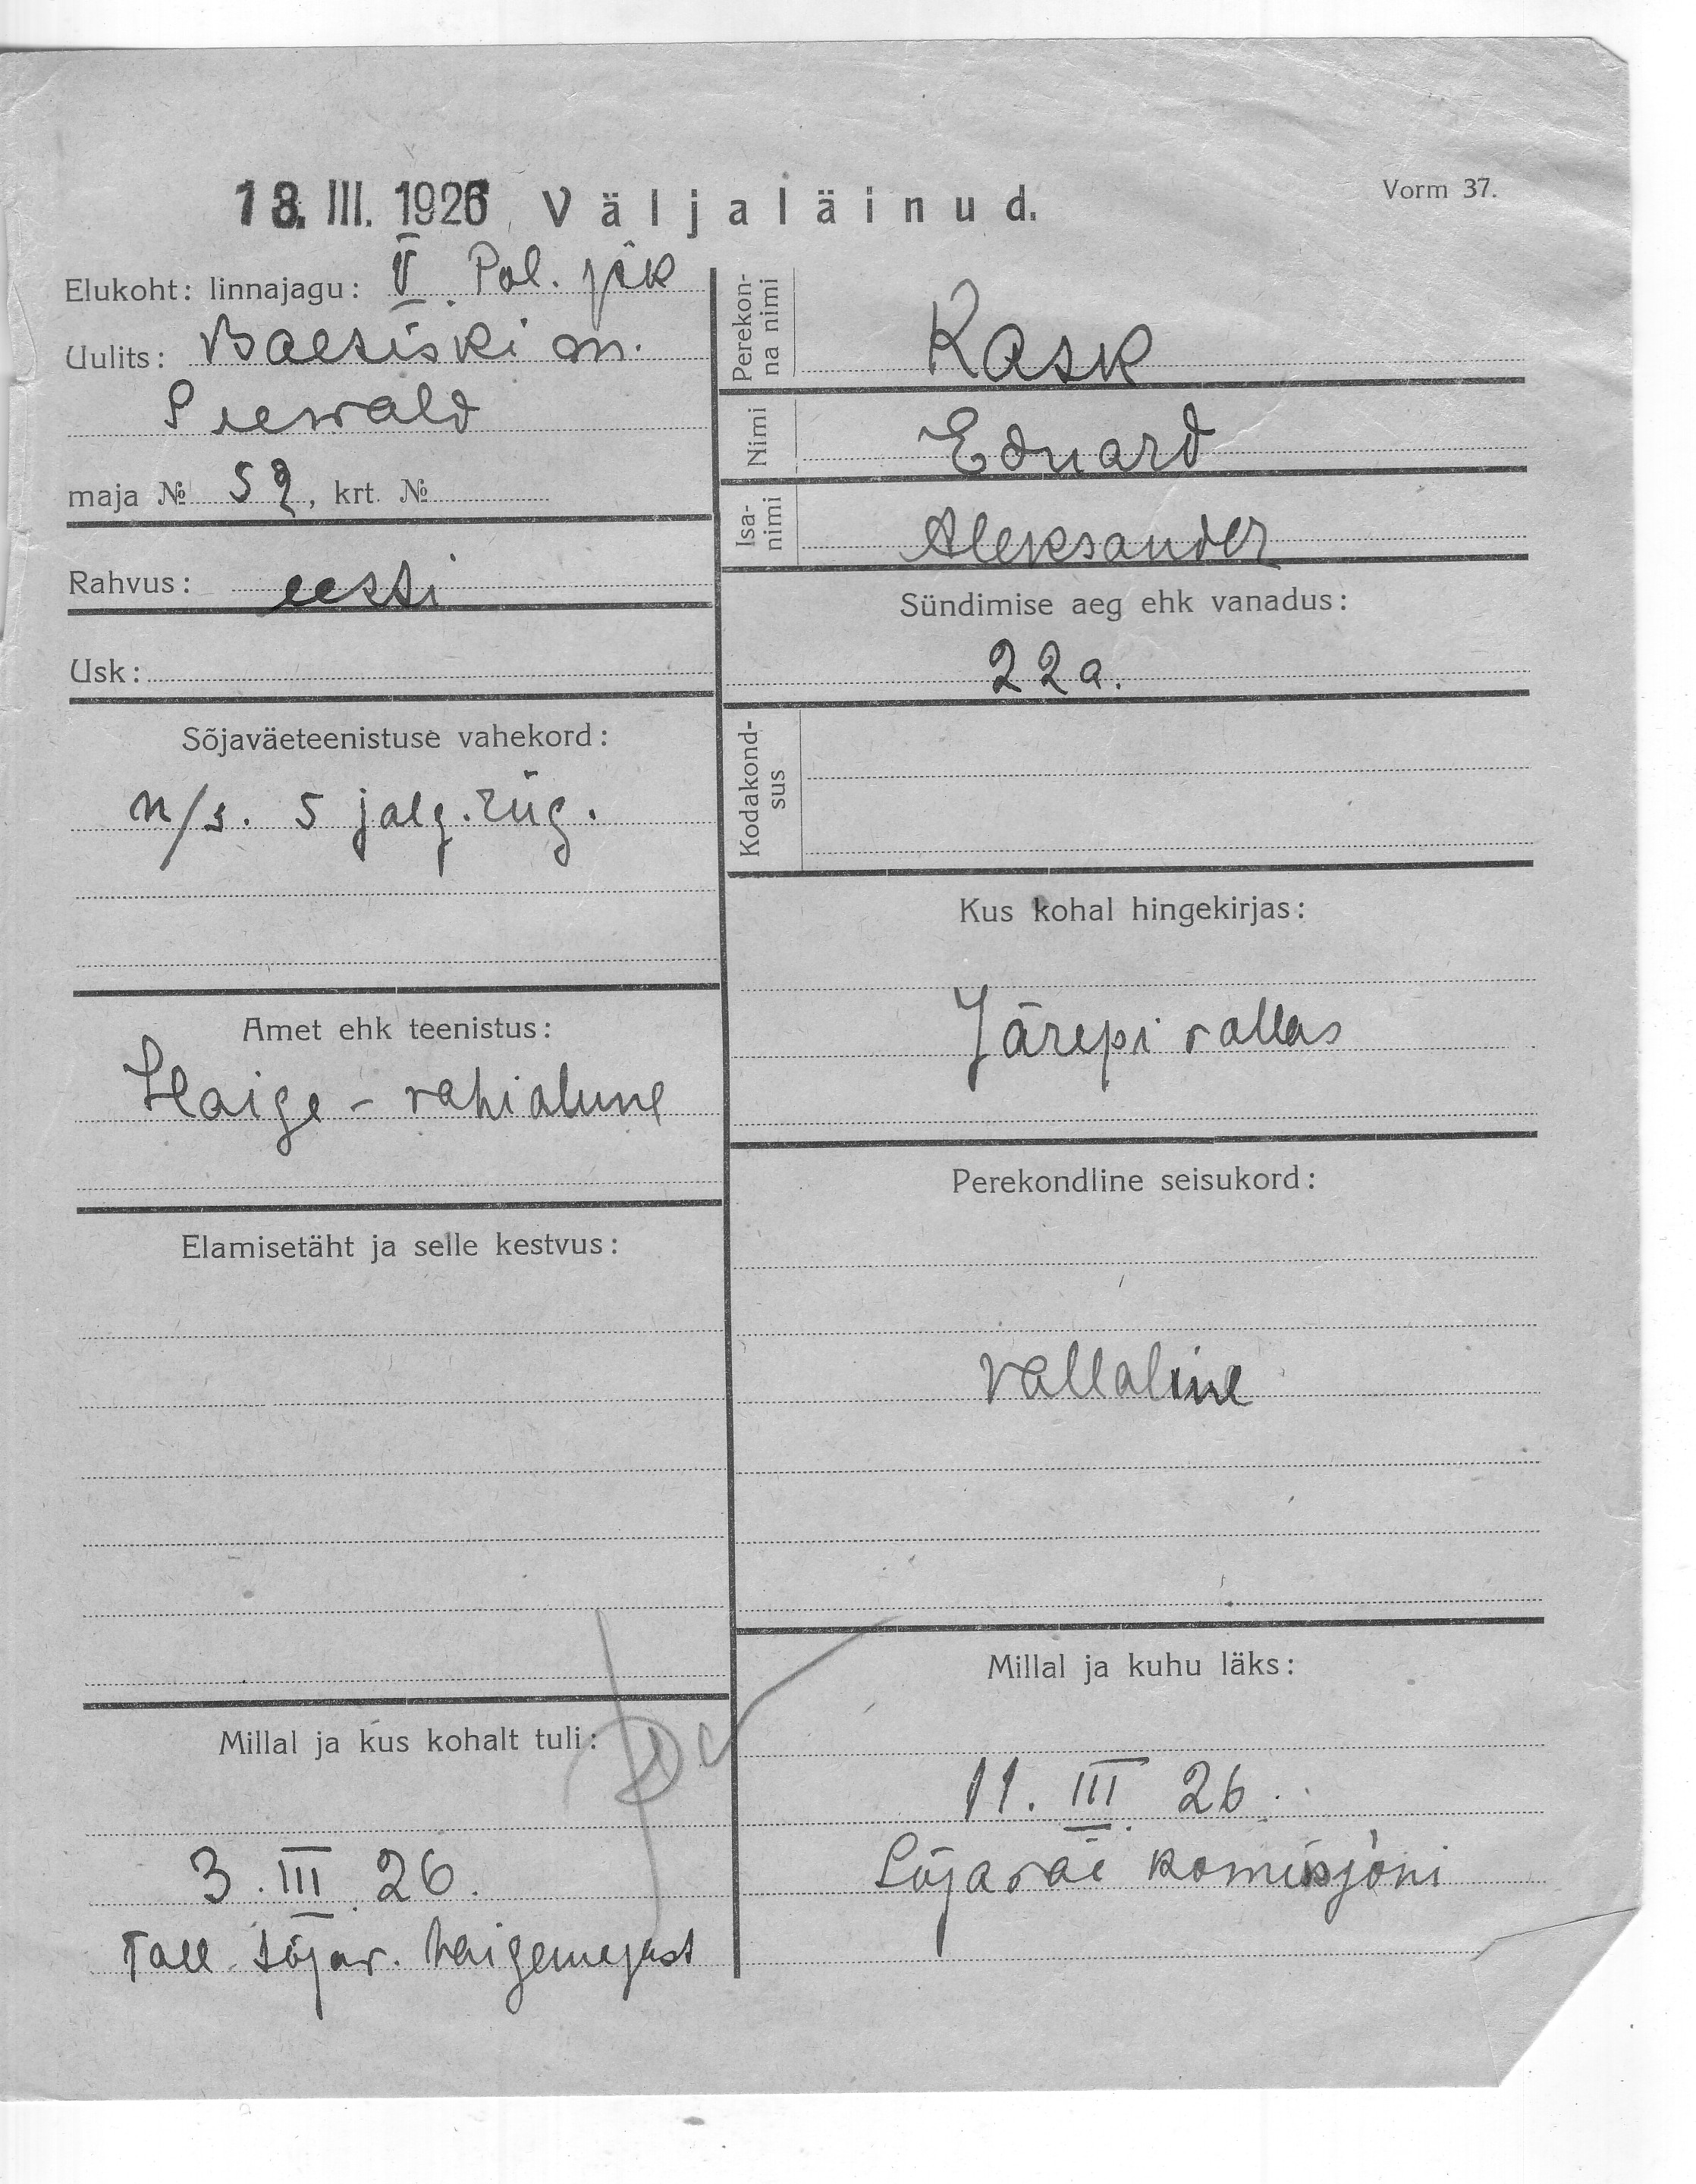 13. III. 1926 Väljaläinud.
Vorm 37.
Elukoht: linnajagu: V. Pol. jsk
Uulits: Baltiski m.
Seewald
maja № 52, krt. №
Rahvus: eesti
Usk:
Sõjaväeteenistuse vahekord:
n/s. 5 jalg. rüg.
Amet ehk teenistus:
Haige - vahialune
Elamisetäht ja selle kestvus:
Millal ja kus kohalt tuli:
3. III. 26.
Tall. sõjav. haigemajast
Perekon-
na nimi
Kask
Nimi
Eduard
Isa-
nimi
Aleksander
Sündimise aeg ehk vanadus:
22 a.
Kodakond-
sus
Kus kohal hingekirjas:
Järepi vallas
Perekondline seisukord:
vallaline
Millal ja kuhu läks:
11. III. 26.
Sõjaväe komisjoni